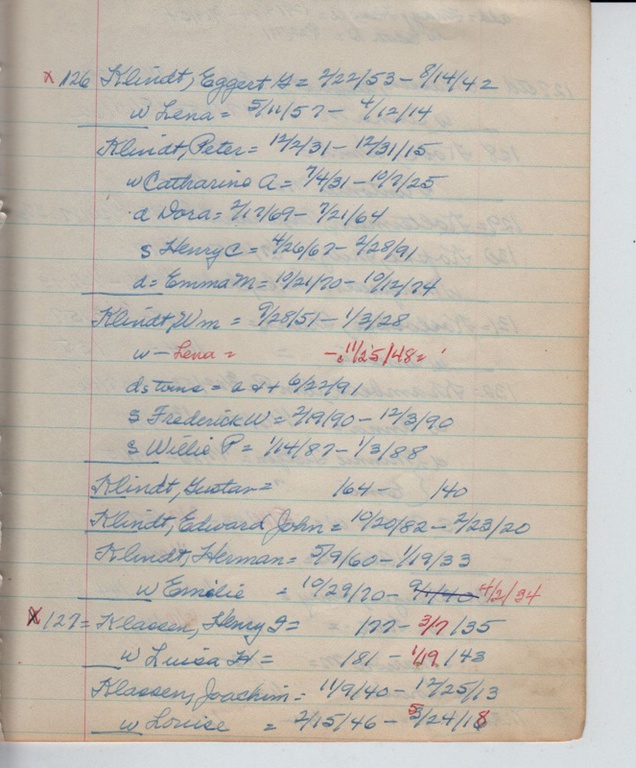 x 126 Klindt, Eggert G = 2/22/53 - 8/14/42
w Lena = 5/11/57 - 4/12/14
Klindt, Peter = 12/2/31 - 12/31/15
w Catharina A = 7/4/31 - 10/7/25
d Dora = 2/17/69 - 7/21/64
s Henry C = 4/26/67 - 2/28/91
d = Emma M = 10/21/70 - 10/12/74
Klindt, Wm = 9/28/51 - 1/3/28
w - Lena = - 11/25/48 =
d & twins = a & + 6/22/91
s Frederick W = 2/19/90 - 12/3/90
s Willie P = 1/14/87 - 1/3/88
Klindt, Gustav = 164 - 140
Klindt, Edward John = 10/20/82 - 2/23/20
Klindt, Herman = 5/9/60 - 1/19/33
w Emilie = 10/29/70 - 4/2/34
x 127 = Klassen, Henry J = 177 - 3/7/35
w Luisa H = 181 - 1/19/43
Klassen, Joachim = 11/9/40 - 12/25/13
w Louise = 2/15/46 - 3/24/18